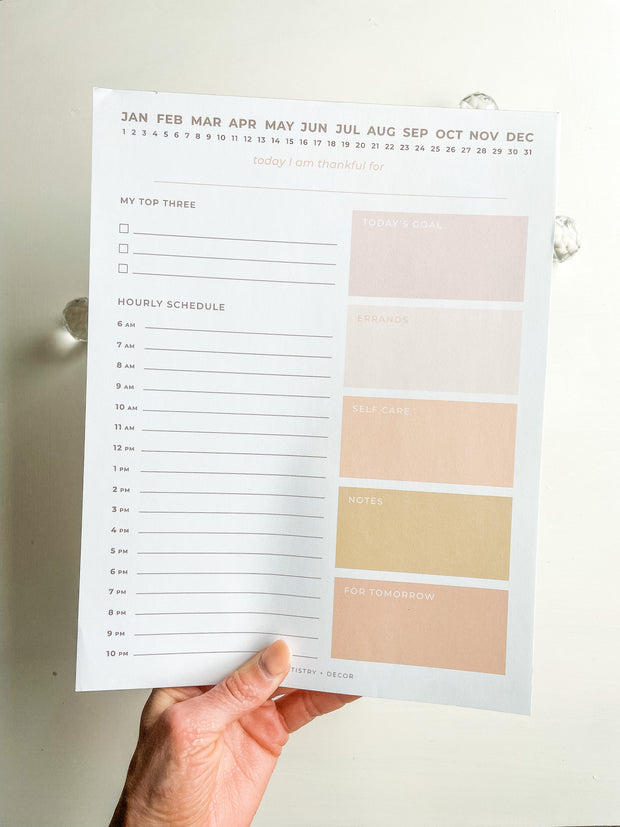 JAN FEB MAR APR MAY JUN JUL AUG SEP OCT NOV DEC
1 2 3 4 5 6 7 8 9 10 11 12 13 14 15 16 17 18 19 20 21 22 23 24 25 26 27 28 29 30 31
today I am thankful for
MY TOP THREE
HOURLY SCHEDULE
6 AM
7 AM
8 AM
9 AM
10 AM
11 AM
12 PM
1 PM
2 PM
3 PM
4 PM
5 PM
6 PM
7 PM
8 PM
9 PM
10 PM
TODAY'S GOAL
ERRANDS
SELF CARE
NOTES
FOR TOMORROW
+ DECOR